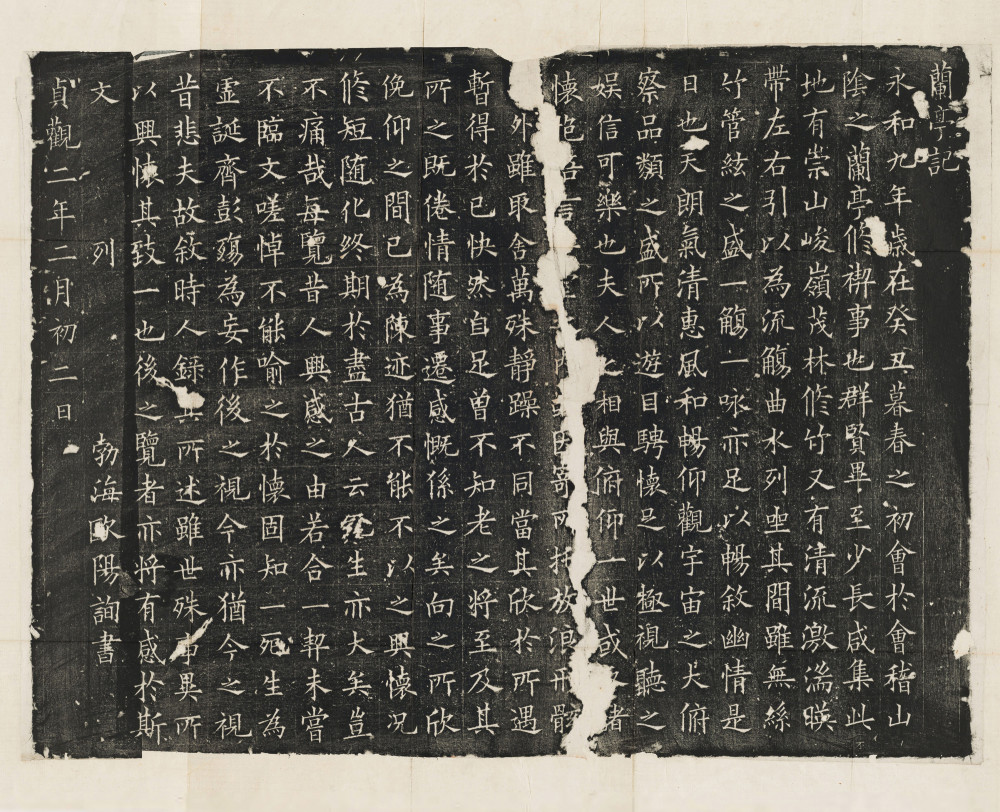 蘭亭記
永和九年歲在癸丑暮春之初會於會稽山
陰之蘭亭修禊事也群賢畢至少長咸集此
地有崇山峻嶺茂林修竹又有清流激湍暎
帶左右引以為流觴曲水列坐其間雖無絲
竹管絃之盛一觴一咏亦足以暢敘幽情是
日也天朗氣清惠風和暢仰觀宇宙之大俯
察品類之盛所以遊目騁懷足以極視聽之
娛信可樂也夫人之相與俯仰一世或諸
懷抱悟言因寄所托放浪形骸
外雖取舍萬殊靜躁不同當其欣於所遇
暫得於己快然自足曾不知老之将至及其
所之既倦情随事遷感慨係之矣向之所欣
俛仰之間已為陳迹猶不能不以之興懷況
修短随化終期於盡古人云死生亦大矣豈
不痛哉每覽昔人興感之由若合一契未嘗
不臨文嗟悼不能喻之於懷固知一死生為
虛誕齊彭殤為妄作後之視今亦猶今之視
昔悲夫故敘時人錄其所述雖世殊事異所
以興懷其致一也後之覽者亦将有感於斯
文 列 勃海歐陽詢書
貞觀二年二月初二日